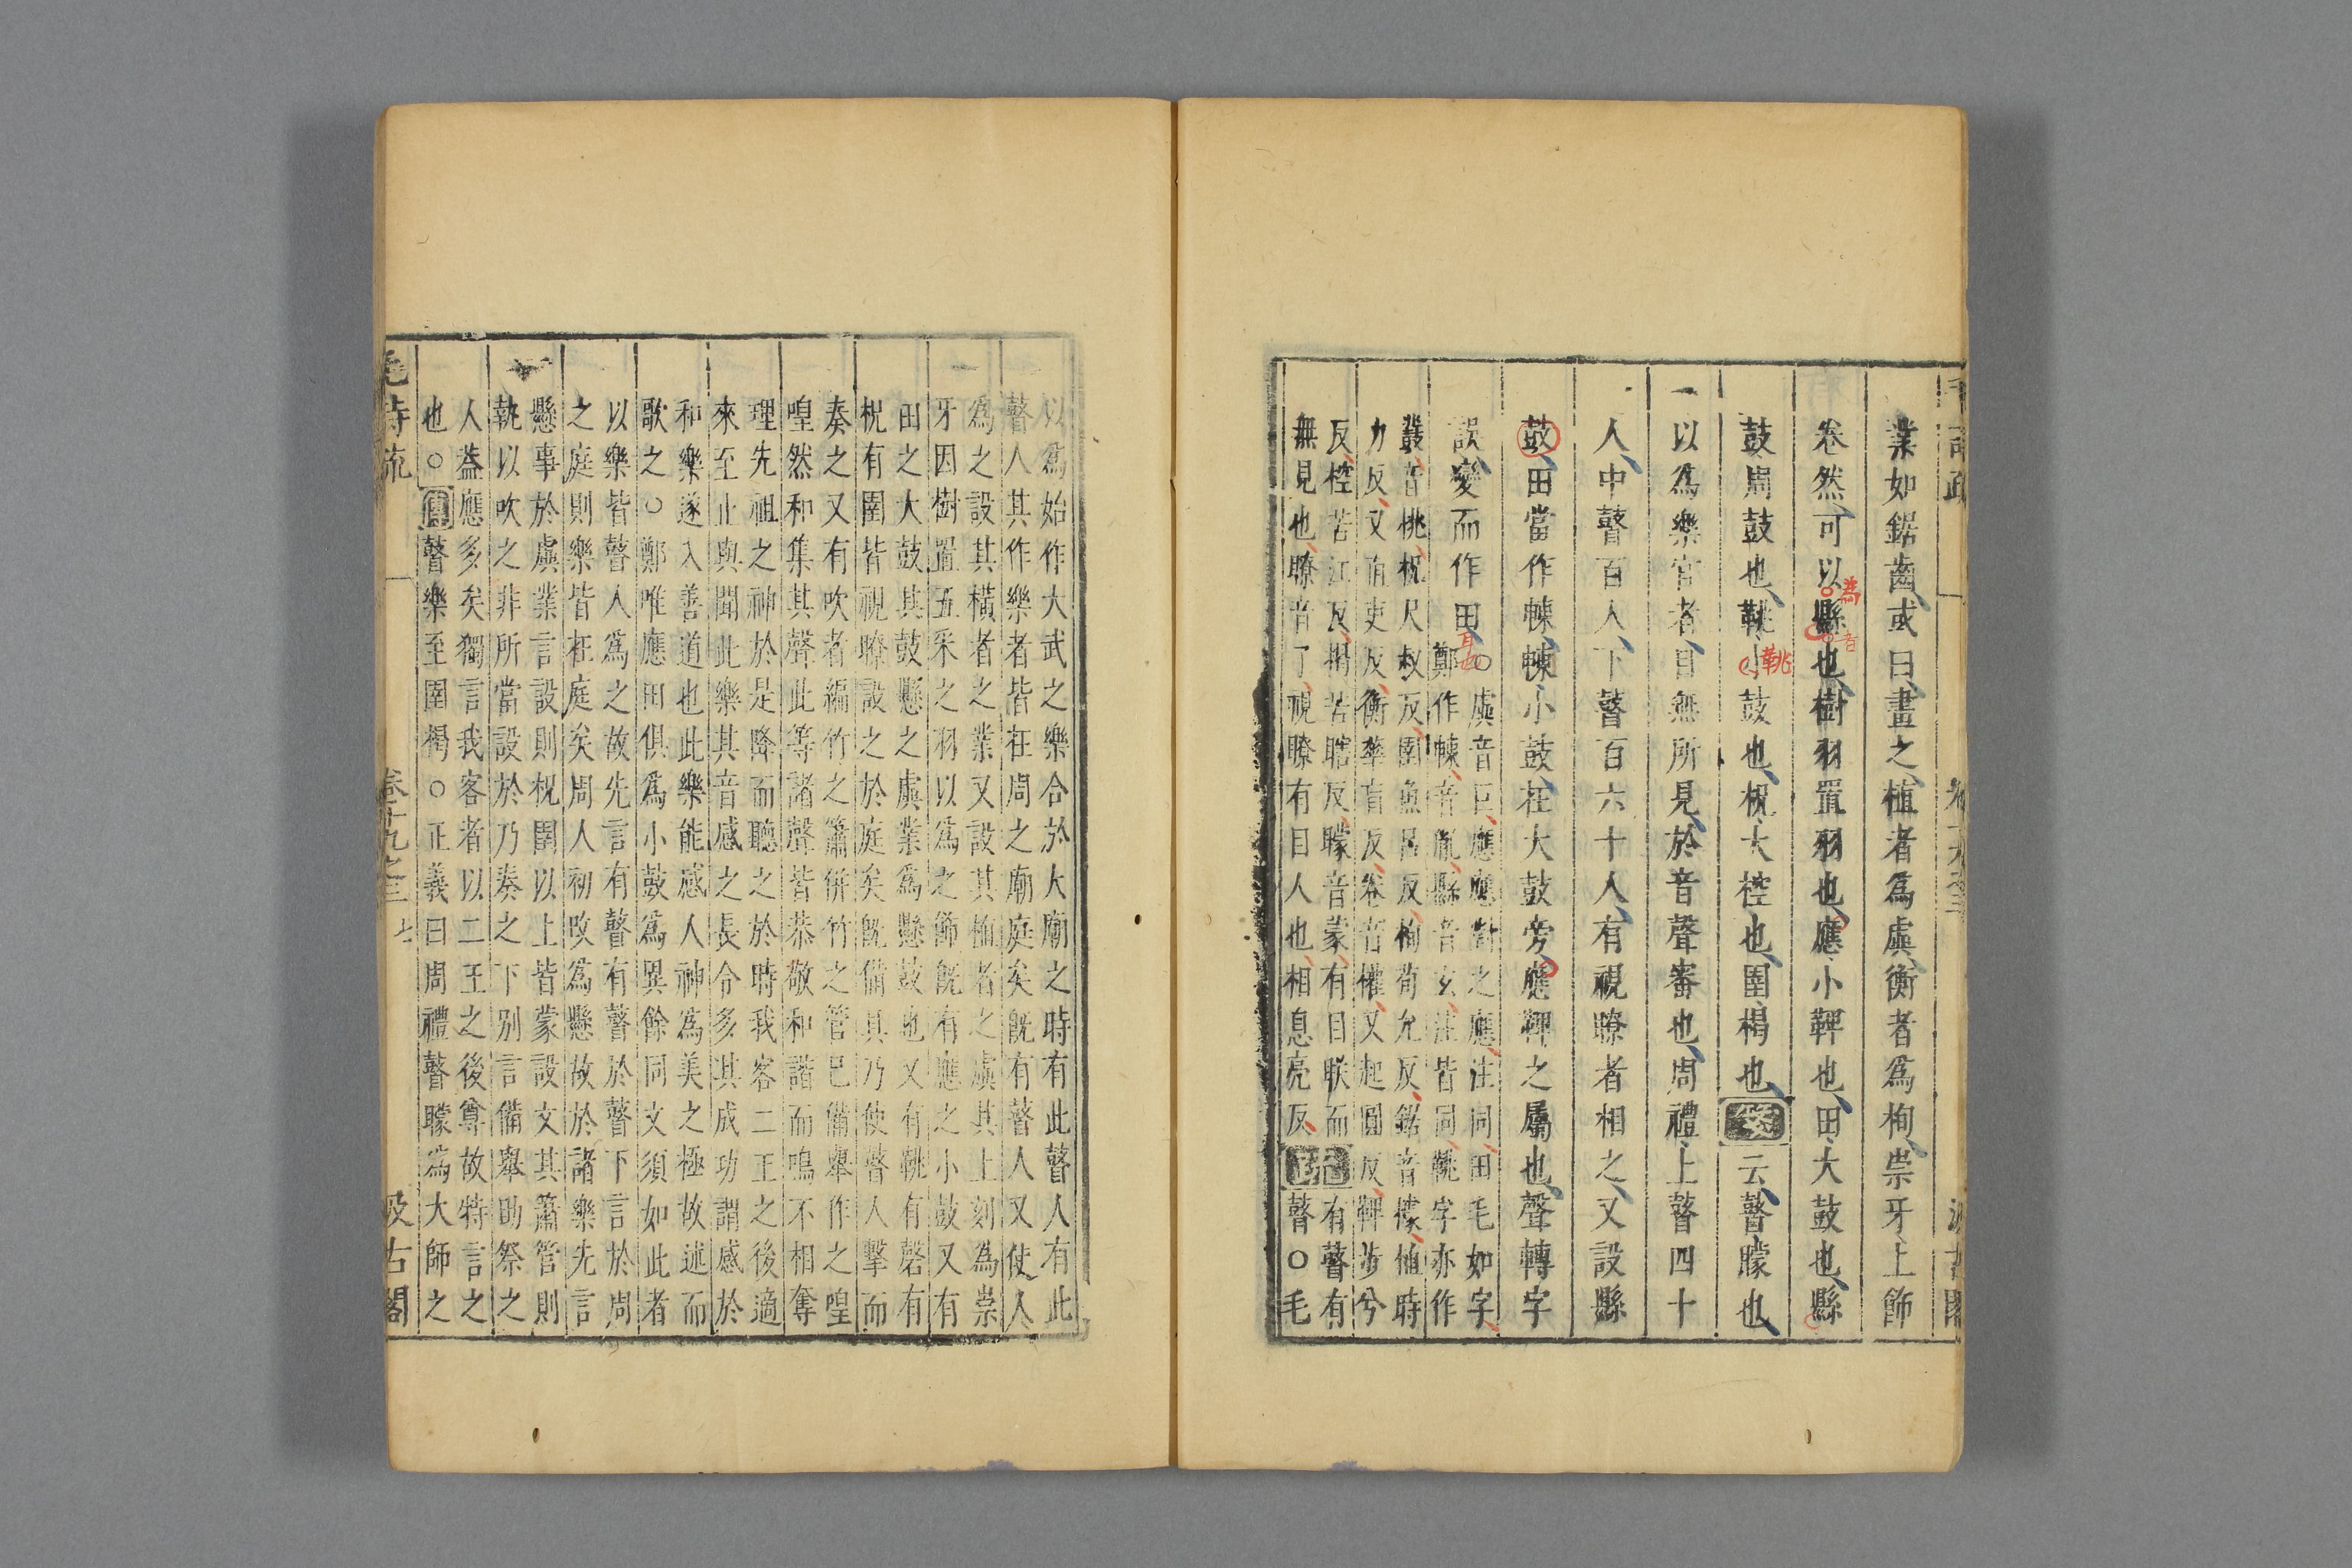 業如鋸齒或曰畫之植者爲虡衡者爲栒崇牙上飾
卷然可以縣也樹羽置羽也應小鞞也田大鼓也縣
爲
者
鼓周鼓也鞉小鼓也柷大椌也圉楬也箋云瞽矇也
鞉
以爲樂官者目無所見於音聲審也周禮上瞽四十
人中瞽百人下瞽百六十人有視瞭者相之又設縣
鼓田當作朄朄小鼓在大鼓旁應鞞之屬也聲轉字
誤變而作田
○虡音巨應應對之應注同田毛如字
鄭作朄音胤縣音玄注皆同鞉字亦作
鼗音桃柷尺叔反圉魚呂反栒荀允反鋸音據植時
力反又市吏反衡華盲反卷音權又起圓反鞞步兮
反椌苦江反楬苦瞎反矇音蒙有目眹而
無見也瞭音了視瞭有目人也相息亮反
疏
有瞽有
瞽○毛
以爲始作大武之樂合於大廟之時有此瞽人有此
瞽人其作樂者皆在周之廟庭矣既有瞽人又使人
爲之設其橫者之業又設其植者之虡其上刻爲崇
牙因樹置五采之羽以爲之飾既有應之小鼓又有
田之大鼓其鼓懸之虡業爲懸鼓也又有鞉有磬有
柷有圉皆視瞭設之於庭矣既備具乃使瞽人擊而
奏之又有吹者編竹之簫併竹之管已備舉作之喤
喤然和集其聲此等諸聲皆恭敬和諧而鳴不相奪
理先祖之神於是降而聽之於時我客二王之後適
來至止與聞此樂其音感之長令多其成功謂感於
和樂遂入善道也此樂能感人神爲美之極故述而
歌之○鄭唯應田俱爲小鼓爲異餘同文須如此者
以樂皆瞽人爲之故先言有瞽有瞽於瞽下言於周
之庭則樂皆在庭矣周人初改爲懸故於諸樂先言
懸事於虡業言設則柷圉以上皆蒙設文其簫管則
執以吹之非所當設於乃奏之下別言備舉助祭之
人蓋應多矣獨言我客者以二王之後尊故特言之
也○傳瞽樂至圉楬○正義曰周禮瞽矇爲大師之
毛詩疏
卷十九之三
七
汲古閣